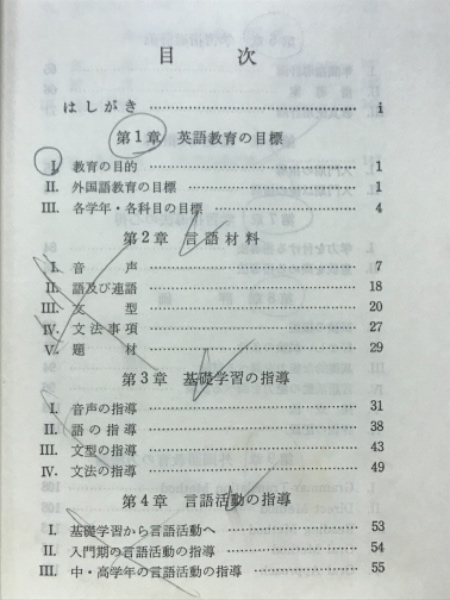 目次
はしがき ……………… i
第1章 英語教育の目標
I. 教育の目的 ……………… 1
II. 外国語教育の目標 ……………… 1
III. 各学年・各科目の目標 ……………… 4
第2章 言語材料
I. 音声 ……………… 7
II. 語及び連語 ……………… 18
III. 文型 ……………… 20
IV. 文法事項 ……………… 27
V. 題材 ……………… 29
第3章 基礎学習の指導
I. 音声の指導 ……………… 31
II. 語の指導 ……………… 38
III. 文型の指導 ……………… 43
IV. 文法の指導 ……………… 49
第4章 言語活動の指導
I. 基礎学習から言語活動へ ……………… 53
II. 入門期の言語活動の指導 ……………… 54
III. 中・高学年の言語活動の指導 ……………… 55